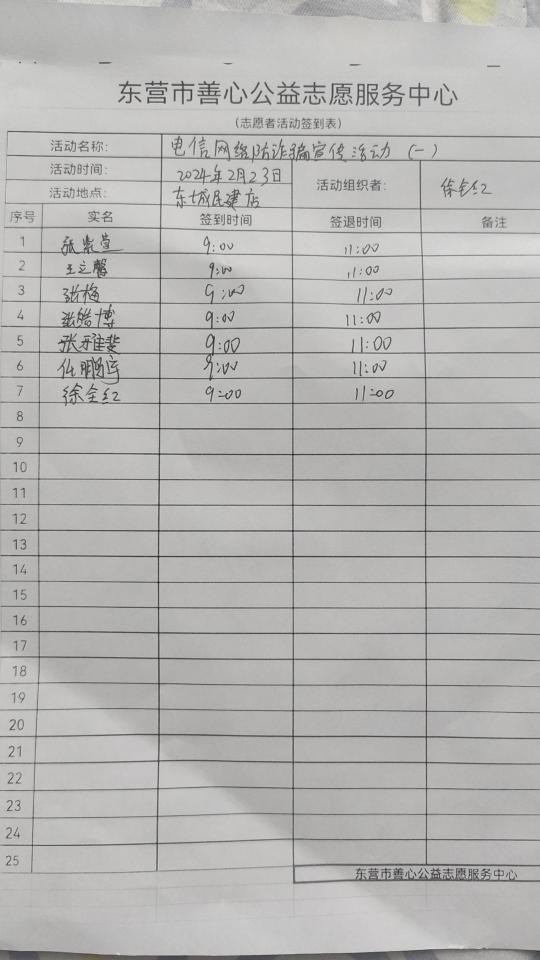 东营市善心公益志愿服务中心
（志愿者活动签到表）
活动名称： 电信网络防诈骗宣传活动（一）
活动时间： 2024年2月23日 活动组织者： 徐全红
活动地点： 东城民建店
序号 实名 签到时间 签退时间 备注
1 张紫萱 9:00 11:00
2 王立馨 9:00 11:00
3 张梅 9:00 11:00
4 张皓博 9:00 11:00
5 张雅斐 9:00 11:00
6 任鹏宇 9:00 11:00
7 徐全红 9:00 11:00
8
9
10
11
12
13
14
15
16
17
18
19
20
21
22
23
24
25
东营市善心公益志愿服务中心